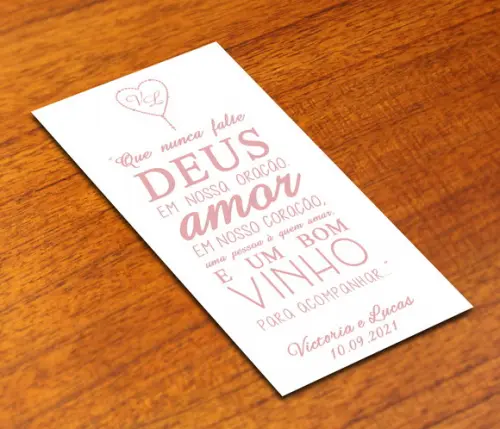 VL
"Que nunca falte
DEUS
EM NOSSA ORAÇÃO.
amor
EM NOSSO CORAÇÃO,
uma pessoa à quem amar,
E UM BOM
VINHO
PARA ACOMPANHAR..."
Victoria e Lucas
10.09.2021